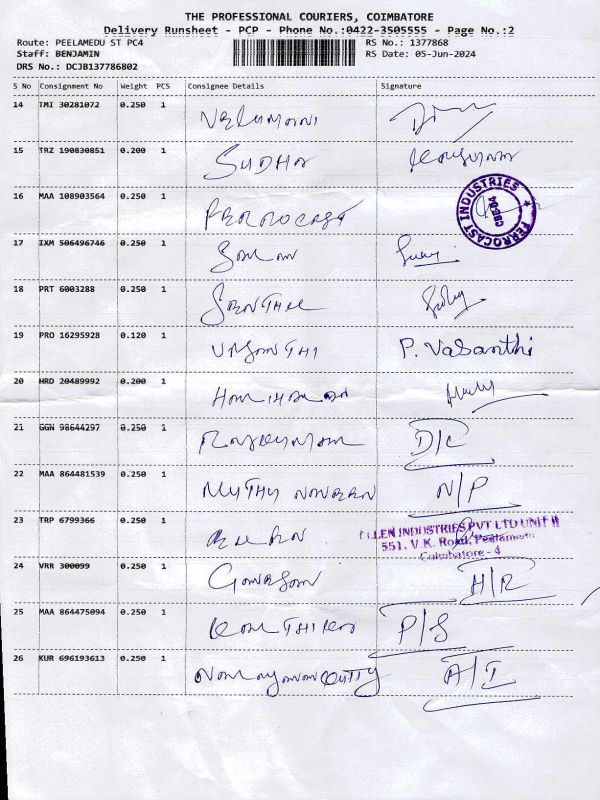 THE PROFESSIONAL COURIERS, COIMBATORE
Delivery Runsheet - PCP - Phone No.:0422-3505555 - Page No.:2
Route: PEELAMEDU ST PC4 RS No.: 1377868
Staff: BENJAMIN RS Date: 05-Jun-2024
DRS No.: DCJB137786802
S No Consignment No Weight PCS Consignee Details Signature
14 TMI 30281072 0.250 1 Velumani
15 TRZ 190830851 0.200 1 SUDHA
16 MAA 108903564 0.250 1 FERROCAST FERROCAST INDUSTRIES CBE-04
17 IXM 506496746 0.250 1
18 PRT 6003288 0.250 1 SENTHIL
19 PRO 16295928 0.120 1 VASANTHI P. Vasanthi
20 HRD 20489992 0.200 1 HARIHARAN
21 GGN 98644297 0.250 1 D/C
22 MAA 864481539 0.250 1 N/P
23 TRP 6799366 0.250 1 ELLEN INDUSTRIES PVT LTD UNIT II
551, V.K. Road, Peelamedu
Coimbatore - 4
24 VRR 300099 0.250 1 H/R
25 MAA 864475094 0.250 1 P/S
26 KUR 696193613 0.250 1 A/I